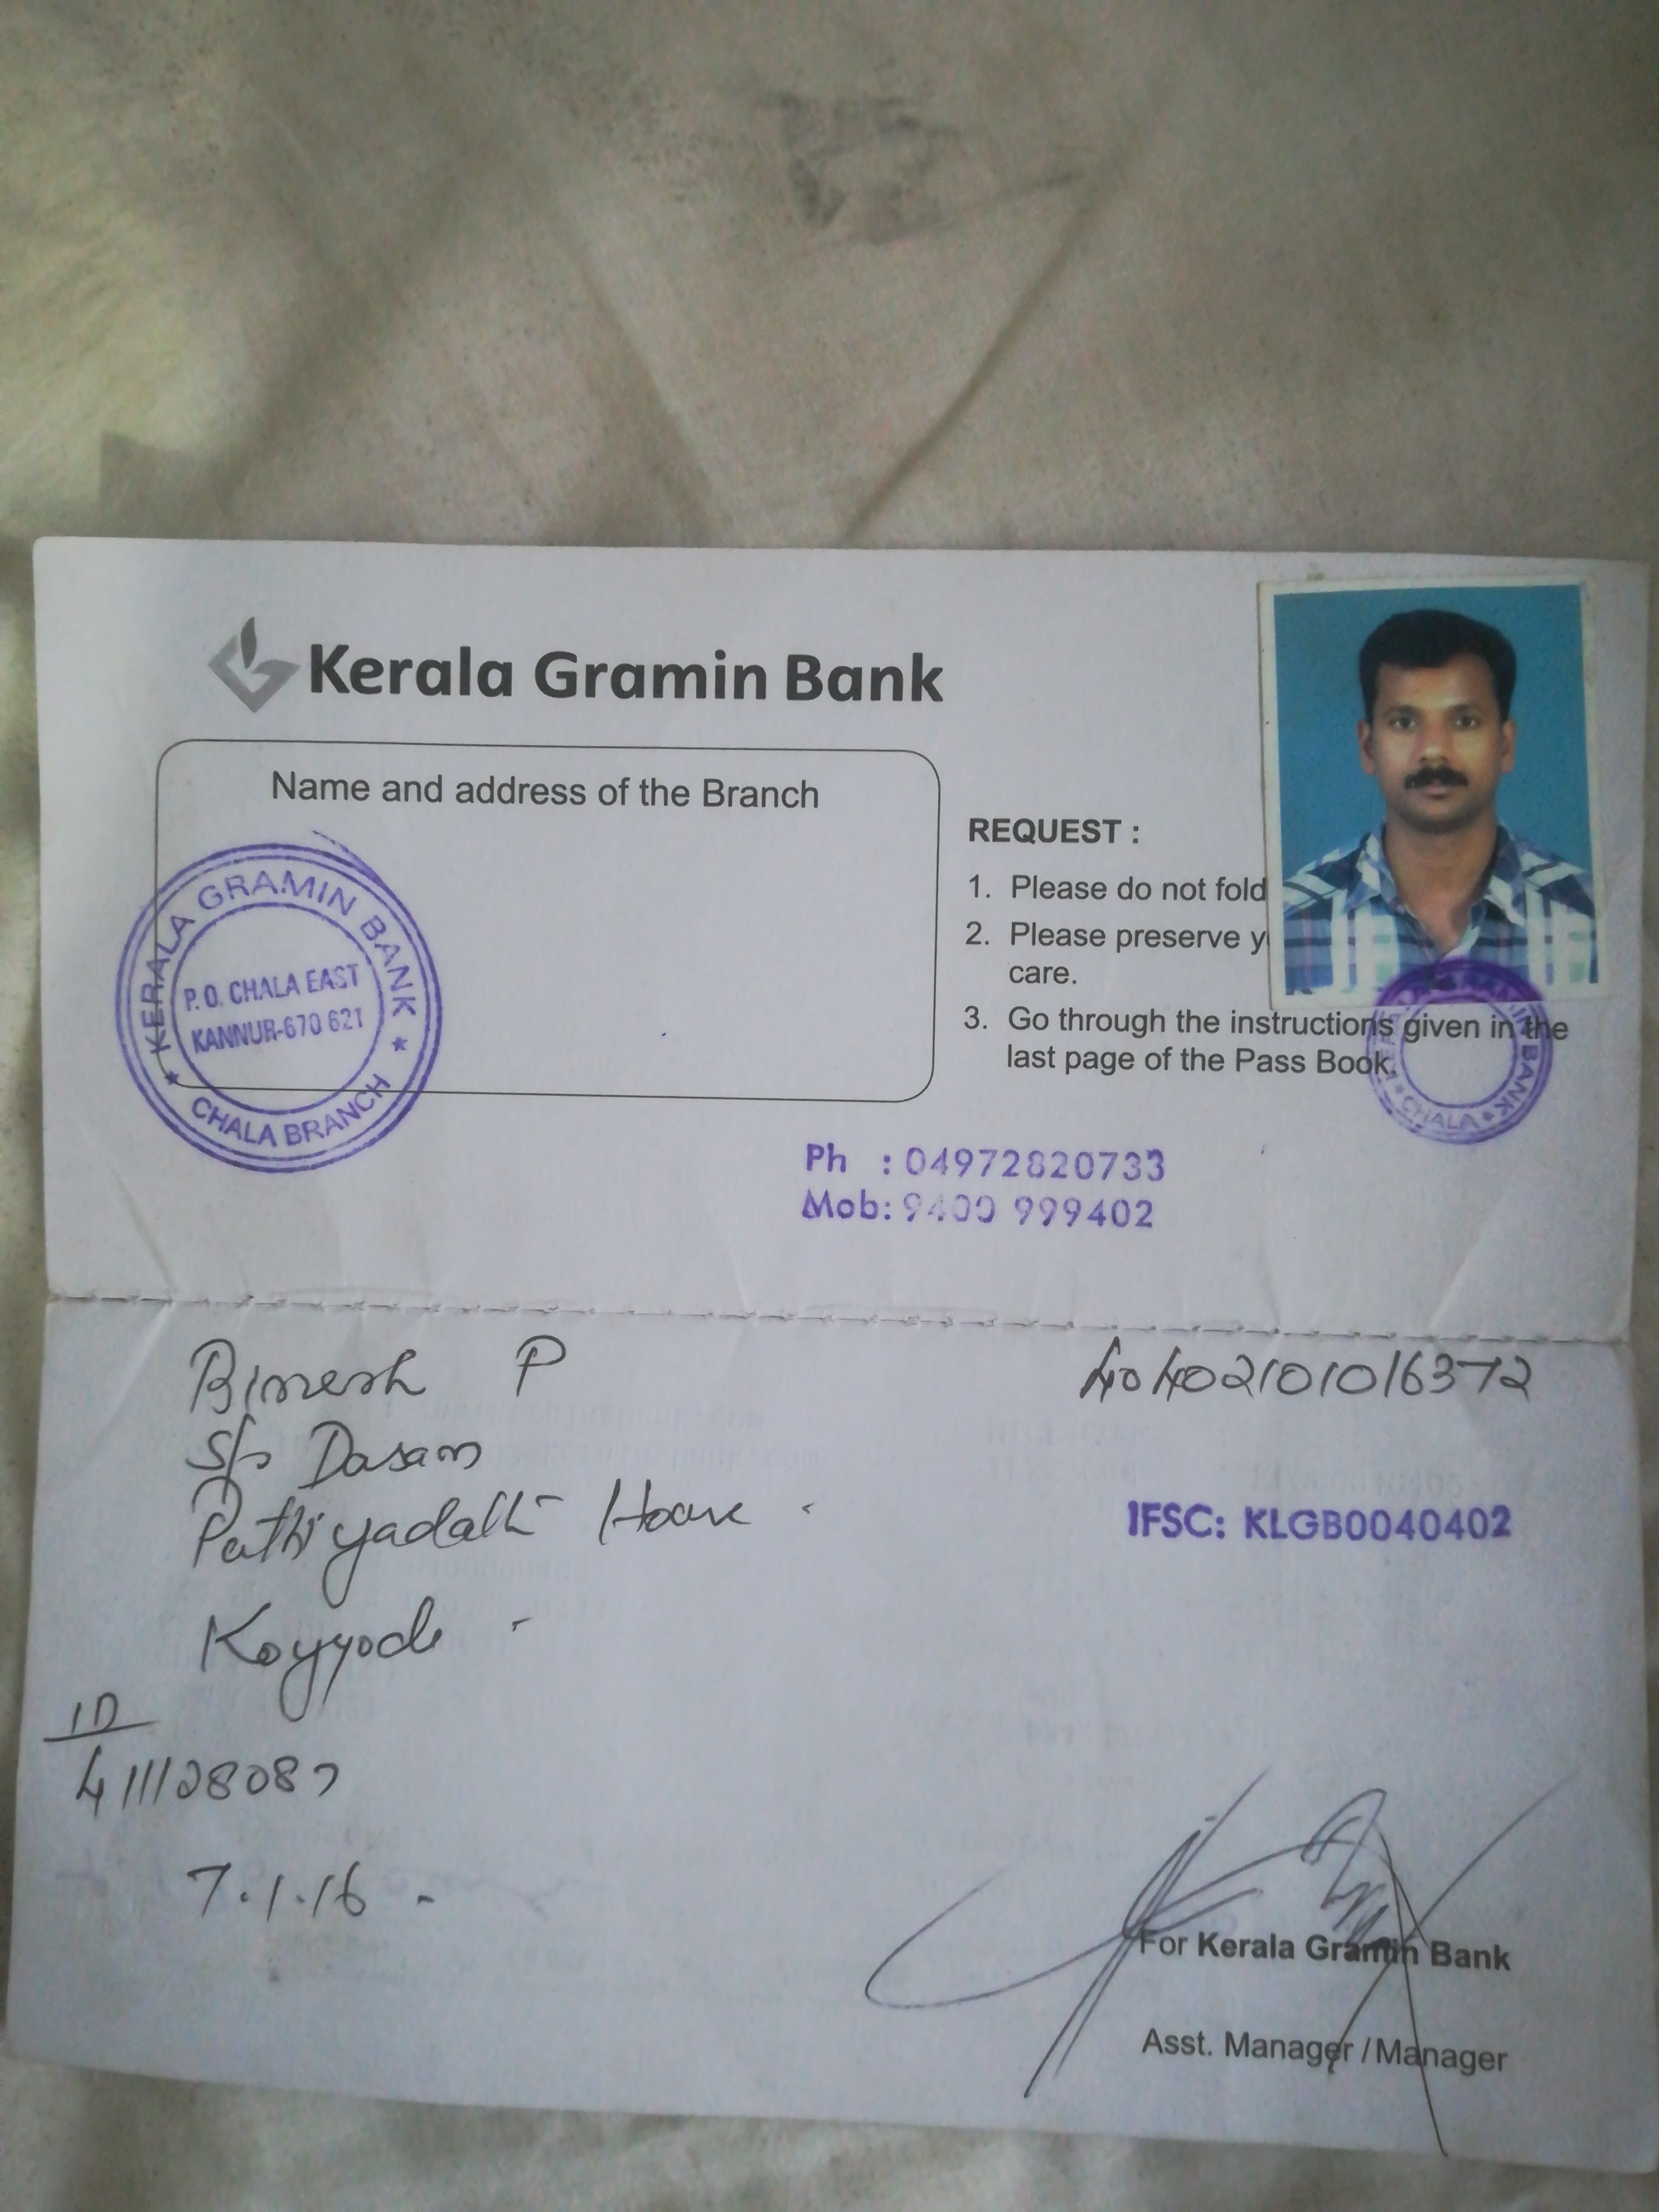 Kerala Gramin Bank
Name and address of the Branch
KERALA GRAMIN BANK
P.O. CHALA EAST
KANNUR-670 621
CHALA BRANCH
REQUEST :
1. Please do not fold
2. Please preserve y
care.
3. Go through the instructions given in the
last page of the Pass Book.
GRAMIN BANK
CHALA
Ph : 04972820733
Mob: 9400 999402
Bimesh P
40402101016372
S/o Dasan
Pathiyadath House
IFSC: KLGB0040402
Koyyode
ID
411128087
7.1.16
For Kerala Gramin Bank
Asst. Manager / Manager